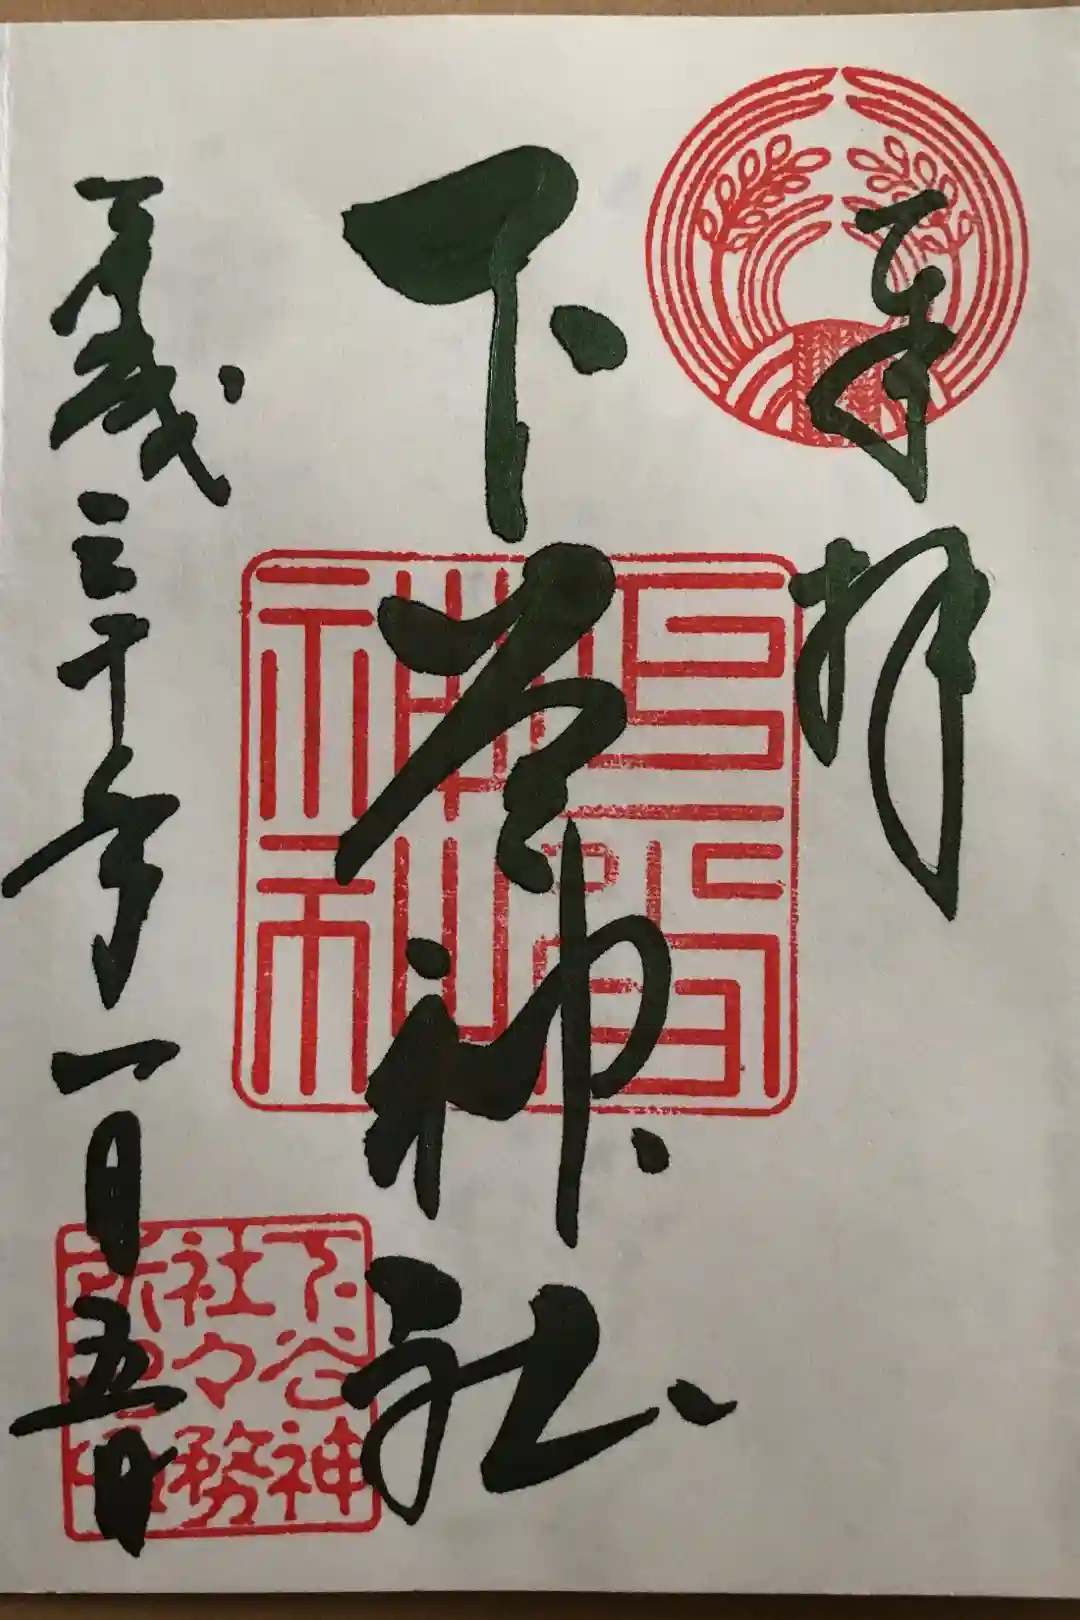 奉拝
下谷神社
平成三十年一月五日
下谷神
社々務
所